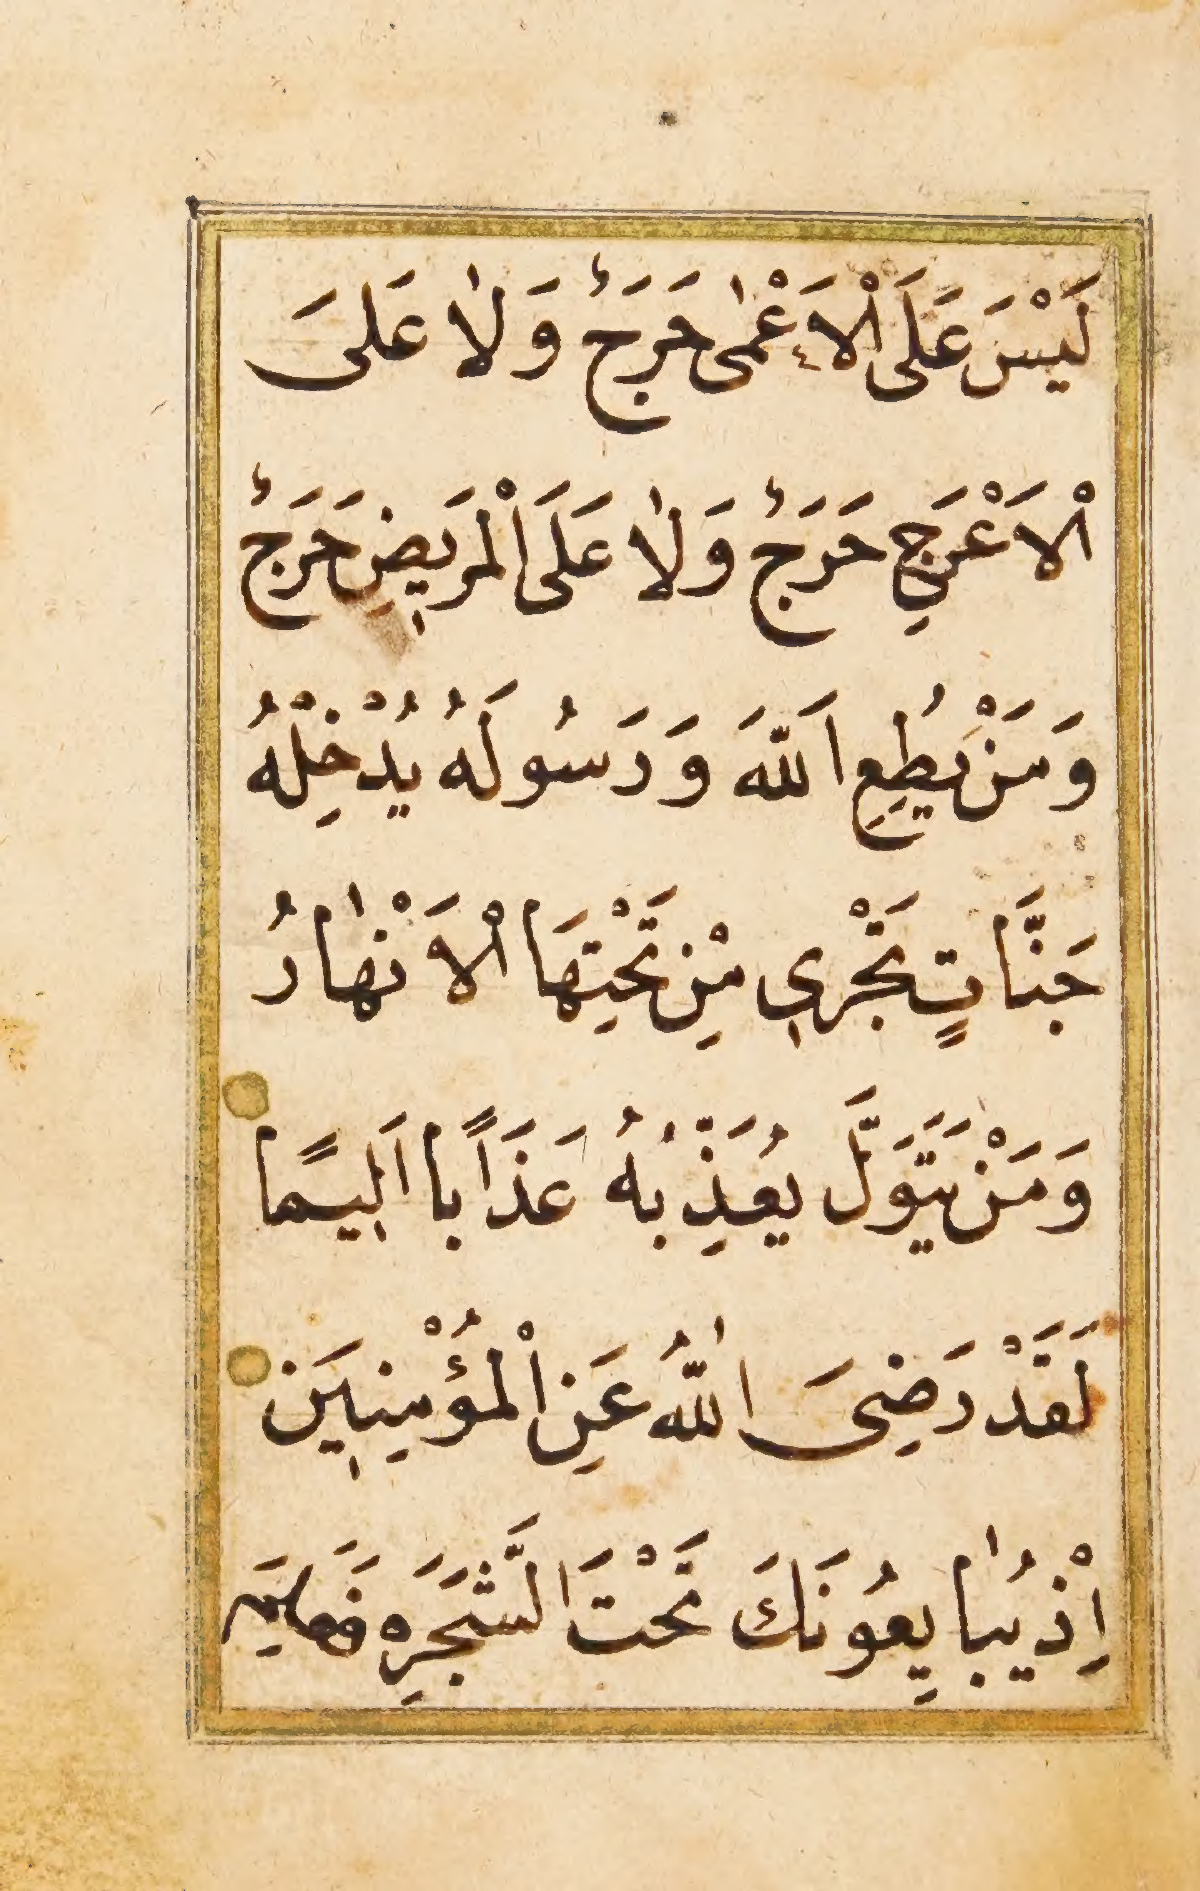 لَيْسَ عَلَى الْاَعْمٰى حَرَجٌ وَلٰا عَلىَ
الْاَعْرَجِ حَرَجٌ وَلٰا عَلَى الْمَرٖيضِ حَرَجٌ
وَمَنْ يُطِعِ اللّٰهَ وَرَسُولَهُ يُدْخِلْهُ
جَنَّاتٍ تَجْرٖى مِنْ تَحْتِهَا الْاَنْهٰارُ
وَمَنْ يَتَوَلَّ يُعَذِّبْهُ عَذَابًا اَلٖيمًا
لَقَدْ رَضِىَ اللّٰهُ عَنِ الْمُؤْمِنٖينَ
اِذْ يُبٰايِعُونَكَ تَحْتَ الشَّجَرَهِ فَعَلِمَ